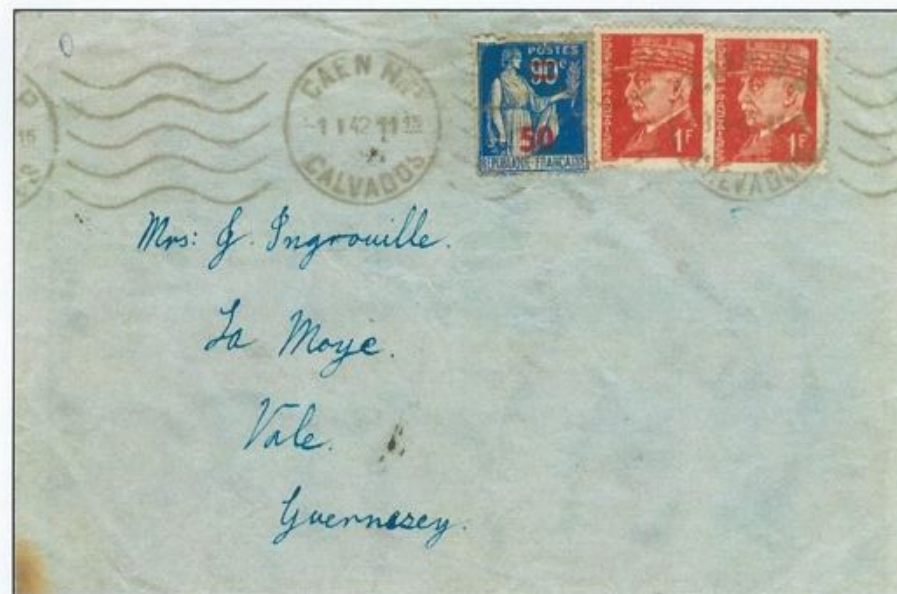 CAEN
1 42 11 15
CALVADOS
POSTES
90c
50
REPUBLIQUE FRANÇAISE
1F
1F
15
Mrs: J. Ingrouille.
La Moye.
Vale.
Guernesey.